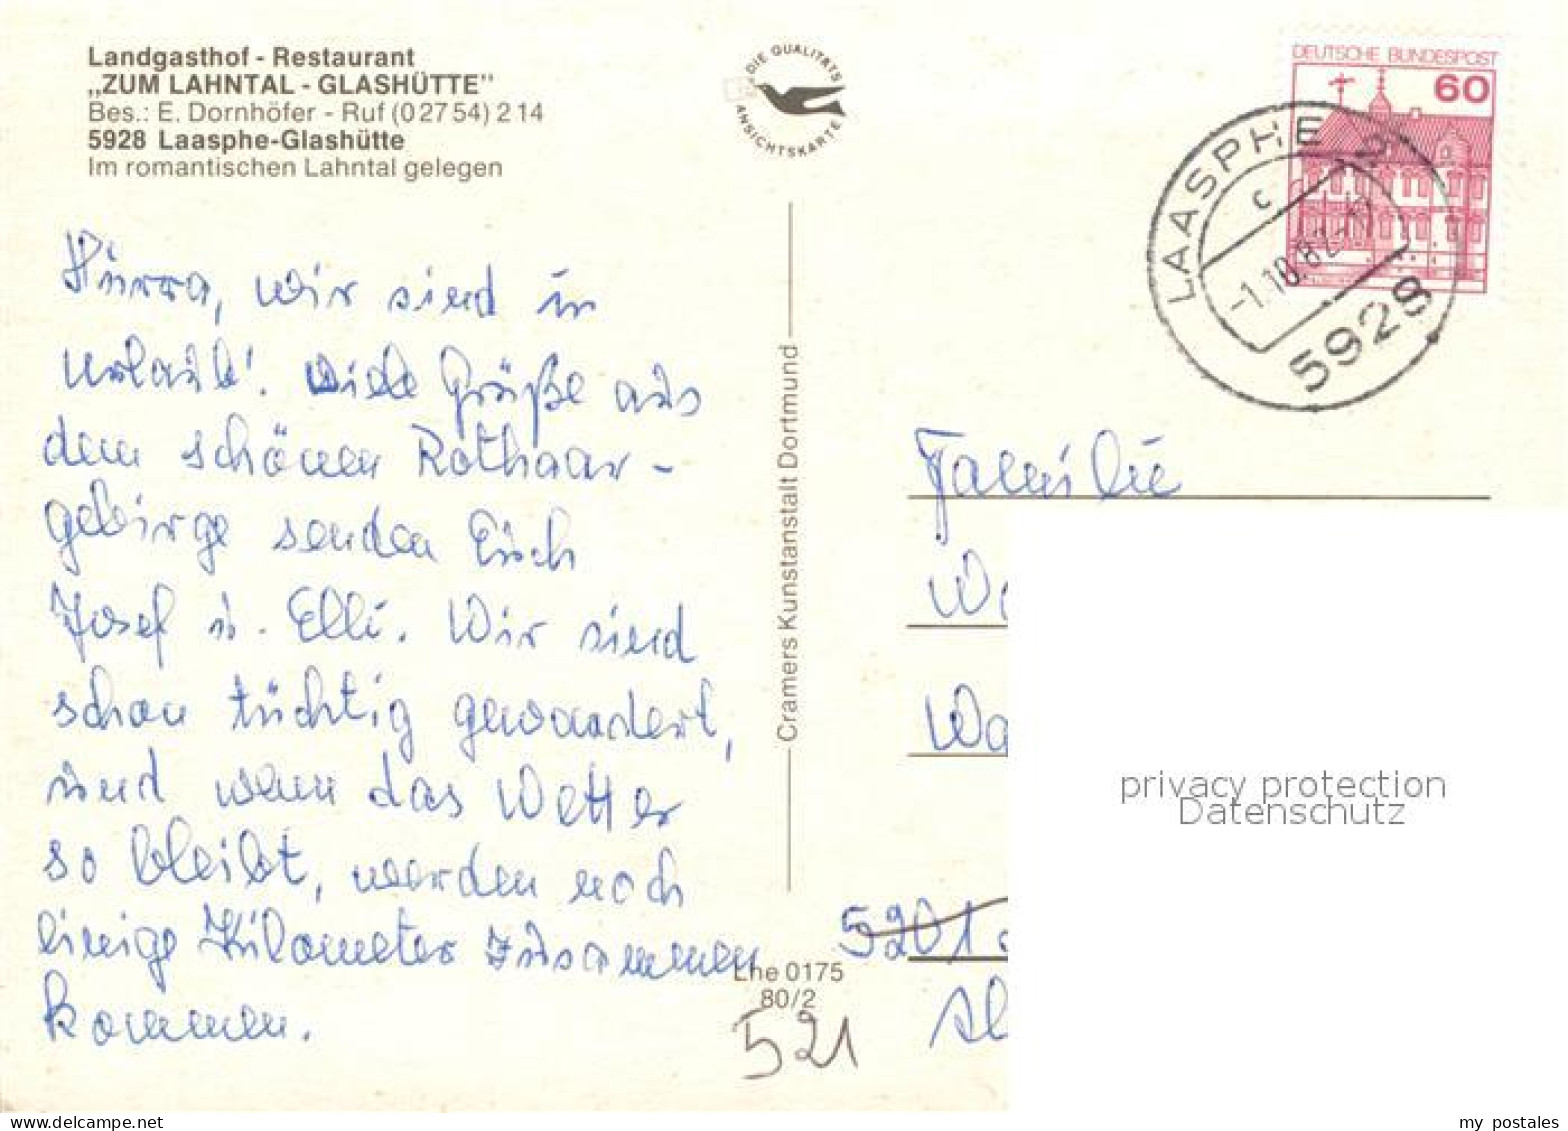 Landgasthof - Restaurant
„ZUM LAHNTAL - GLASHÜTTE"
Bes.: E. Dornhöfer - Ruf (0 27 54) 2 14
5928 Laasphe-Glashütte
Im romantischen Lahntal gelegen
DIE QUALITÄTS
ANSICHTSKARTE
DEUTSCHE BUNDESPOST
60
LAASPHE 2
c
-1.10.82-17
5928
Hurra, wir sind in
Urlaub! Viele Grüße aus
dem schönen Rothaar-
gebirge senden Euch
Josef u. Elli. Wir sind
schon tüchtig gewandert,
und wenn das Wetter
so bleibt, werden noch
einige Kilometer zusammen
kommen.
Cramers Kunstanstalt Dortmund
Lhe 0175
80/2
521
Familie
W
Wa
5201
privacy protection
Datenschutz
my postales